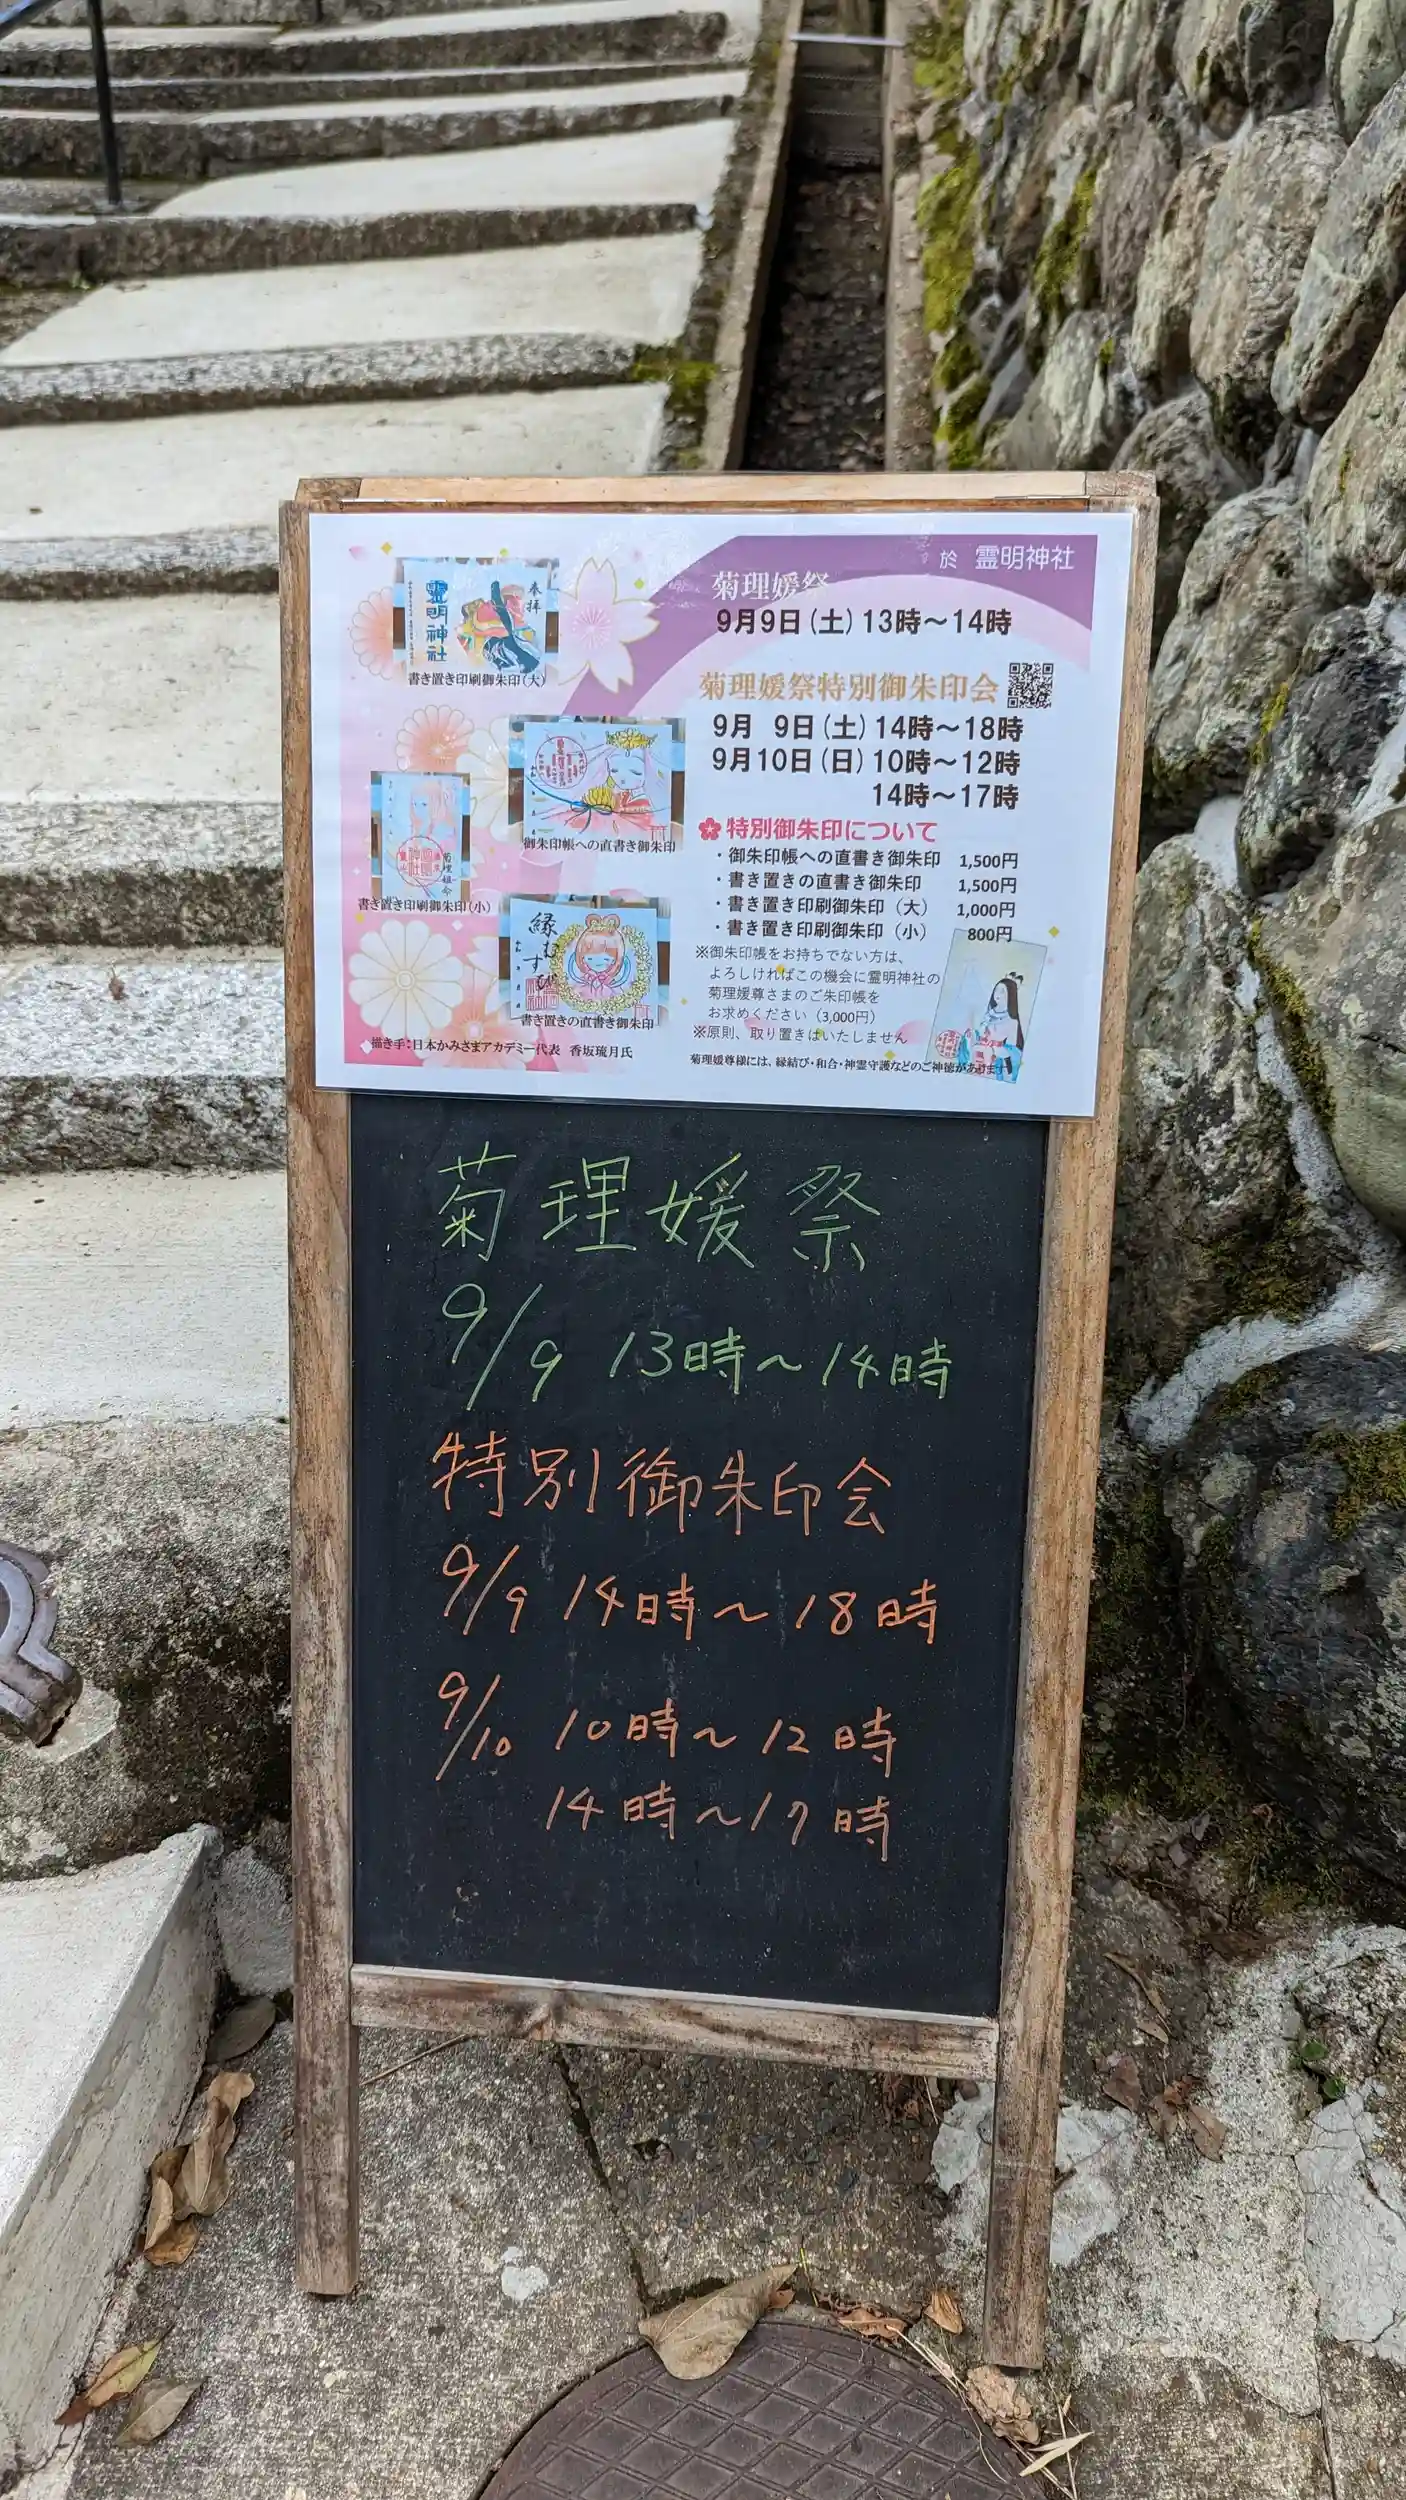 於 霊明神社
菊理媛祭
9月9日(土)13時～14時
菊理媛祭特別御朱印会
9月 9日(土)14時～18時
9月10日(日)10時～12時
14時～17時
特別御朱印について
・御朱印帳への直書き御朱印 1,500円
・書き置きの直書き御朱印 1,500円
・書き置き印刷御朱印（大） 1,000円
・書き置き印刷御朱印（小） 800円
※御朱印帳をお持ちでない方は、
よろしければこの機会に霊明神社の
菊理媛尊さまのご朱印帳を
お求めください（3,000円）
※原則、取り置きはいたしません
菊理媛尊様には、縁結び・和合・神霊守護などのご神徳があります
奉拝
霊明神社
書き置き印刷御朱印(大)
御朱印帳への直書き御朱印
菊理姫命
書き置き印刷御朱印(小)
縁むすび
書き置きの直書き御朱印
描き手：日本かみさまアカデミー代表 香坂琉月氏
菊理媛祭
9/9 13時～14時
特別御朱印会
9/9 14時～18時
9/10 10時～12時
14時～17時